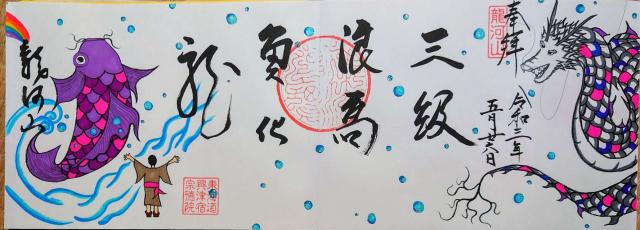 奉拝
龍河山
令和二年
五月廿六日
三級
浪高
魚化
龍
東海道
興津宿
宗徳院
龍河山